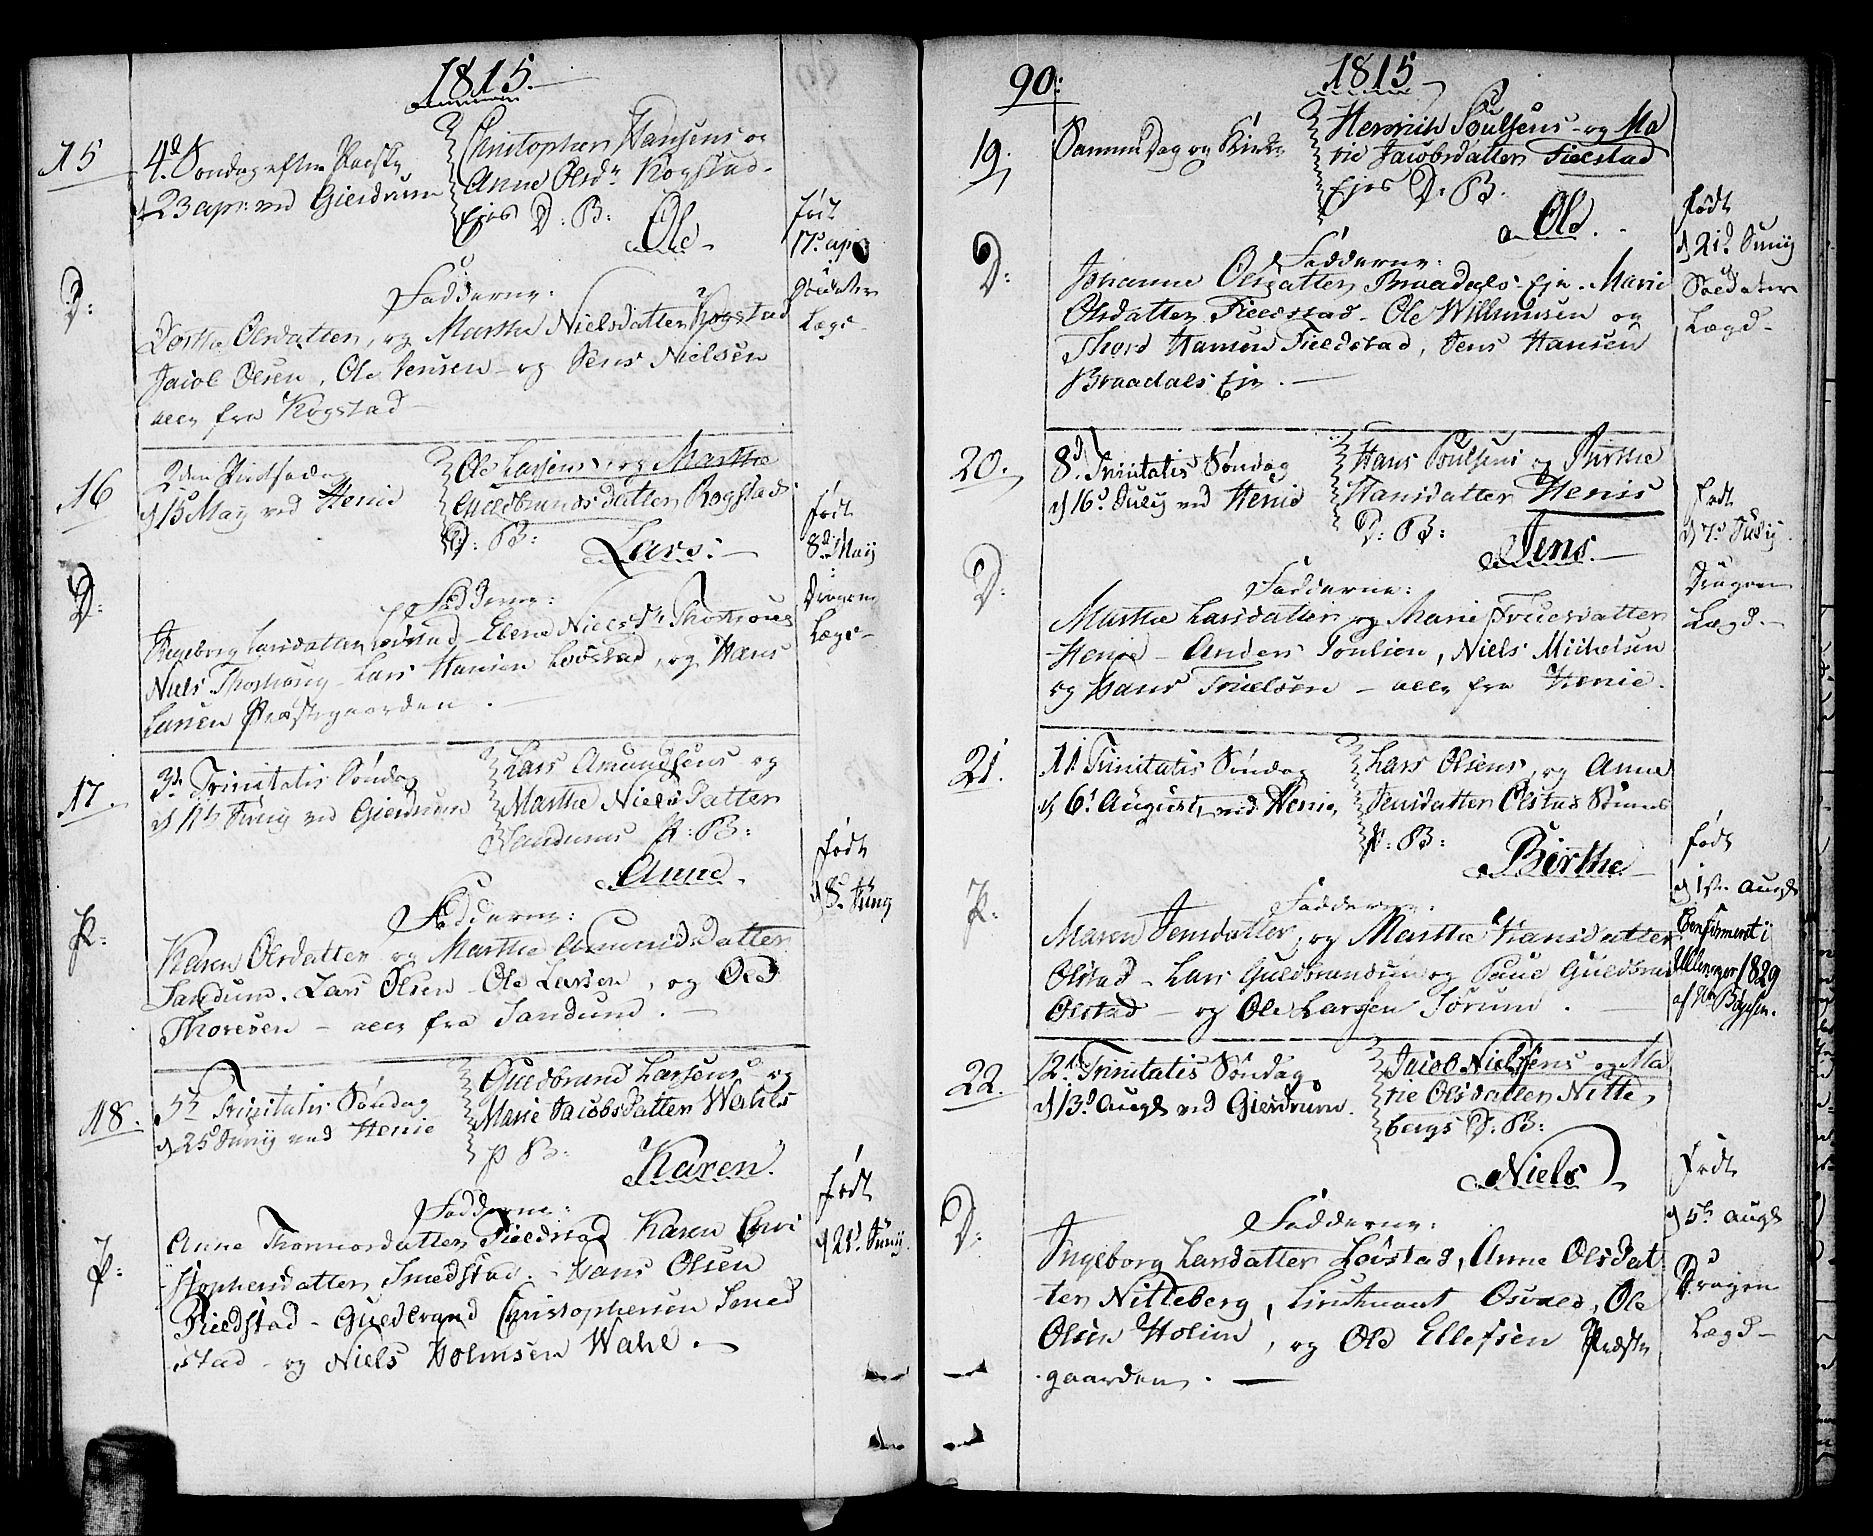 1815.
15
4d Søndag efter Paaske
d 23 apr: ved Gierdrum
Christopher Hansens og
Anne Olsdr Kogstad
Ejes D: B: Ole
født
17d apr
Soldater
Lægd
D:
Fadderne:
Dorthe Olsdatter, og Marthe Nielsdatter Kogstad
Jacob Olsen, Ole Jensen og Jens Nielsen
alle fra Kogstad
16
2den Pintsedag
d 15 Maij ved Henie
Ole Larsens, og Marthe
Guldbrandsdatter Kogstad
D: B:
Lars.
født
8d Maij
Dragon
Lægd
D:
Fadderne:
Ingeborg Larsdatter Løvstad Nielsdr
Niels Lars Hansen Løvstad, og Hans
Larsen Præstegaarden.
17
3die Trinitatis Søndag
d 11d Junij ved Gierdrum
Lars Amundsens og
Marthe Nielsdatter
Sandums P: B:
Anne.
født
d 8d Junij
P:
Fadderne:
Karen Olsdatter og Marthe Amundsdatter
Sandum. Lars Olsen Ole Larsen, og Ole
Thoresen alle fra Sandum.
18.
5te Trinitatis Søndag
d 25d Junij ved Henie
Guldbrand Larsens og
Marie Jacobsdatter Wahls
P B:
Karen.
født
d 21d Junij
P:
Fadderne:
Anne Thommosdatter Fieldstad Karen Chri
stophersdatter Smedstad. Hans Olsen
Fieldstad Guldbrand Christophersen Smed
stad og Niels Holmsen Wahl.
90:
1815
19.
Samme Dag og Kirke
Henrich Poulsens og Ma
rie Jacobsdatter Fielstad
Ejes D: B.
Ole.
født
d 21d Junij
Soldater
Lægd
D:
Fadderne:
Johanne Olsdatter Braadals Eje. Marie
Olsdatter Fieldstad Ole Willumsen og
Thord Hansen Fieldstad, Jens Hansen
Braadals Eje.
20.
8d Trinitatis Søndag
d 16d Julij ved Henie
Hans Poulsens og Birthe
Hansdatter Henie
D: B:
Jens.
født
d 7d Julij
Dragon
Lægd
D:
Fadderne:
Marthe Larsdatter og Marie Truelsdatter
Henie Anders Poulsen, Niels Michelsen
og Hans Truelsen alle fra Henie.
21.
11. Trinitatis Søndag
d 6d August, ved Henie,
Lars Olsens, og Anne
Jensdatter Olstad
P: B:
Birthe
født
d 1ste Augt
Confirmert i
Ullensager 1829
af Hr
P:
Fadderne.
Maren Jensdatter, og Marthe Hansdatter
Olstad Lars Guldbrandsen og Poul Guldbran
Olstad og Ole Larsen Sørum.
22.
12d Trinitatis Søndag
d 13d Augt ved Gierdrum.
Jacob Nielsens og Ma
rie Olsdatter Nitte
bergs D: B:
Niels
født
d 5te Augt
Dragon
Lægd
D:
Fadderne:
Ingeborg Larsdatter Løvstad, Anne Olsdat
ter Nitteberg, Lieutnant Osvald, Ole
Olsen Holm, og Ole Ellefsen Præste
gaarden.